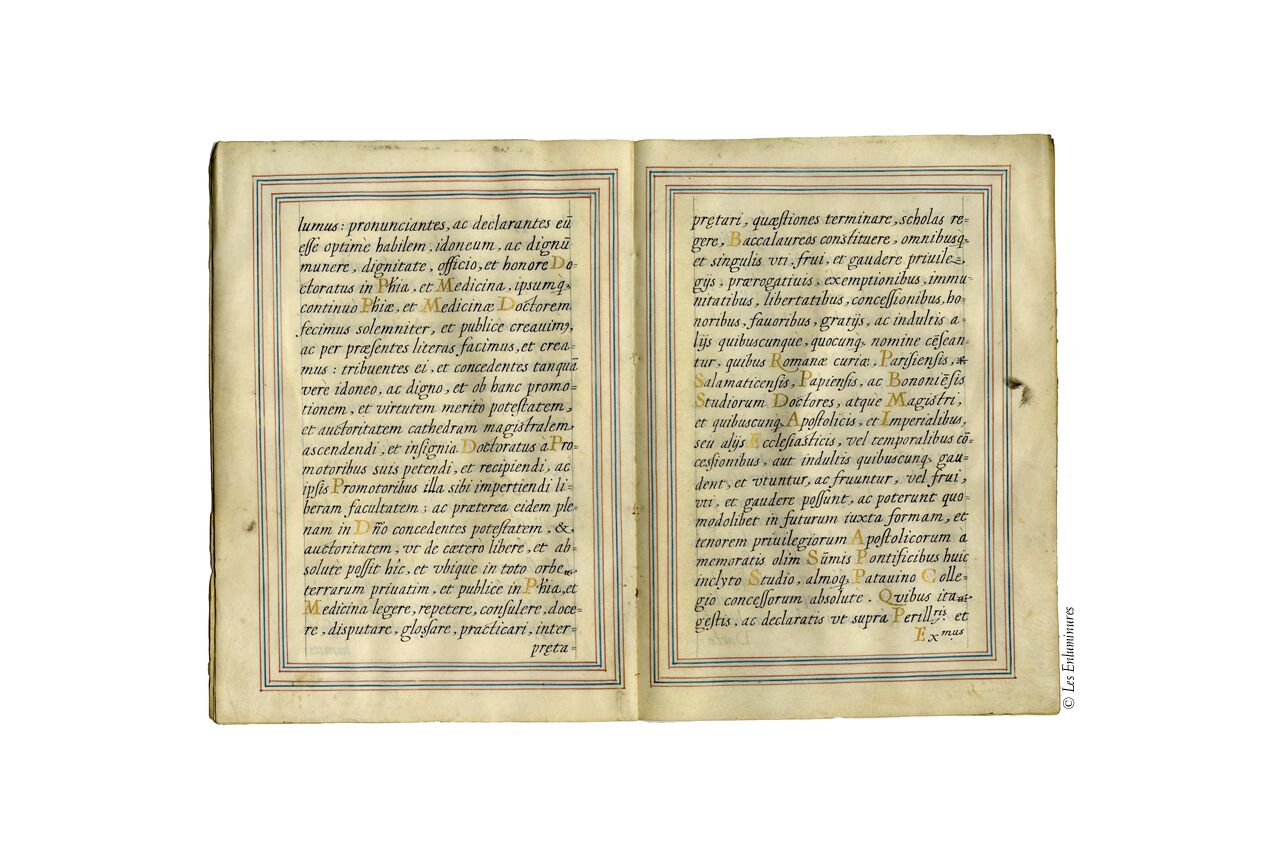 lumus: pronunciantes, ac declarantes eū
esse optimè habilem, idoneum, ac dignū
munere, dignitate, officio, et honore Do=
ctoratus in Phia, et Medicina, ipsumq꞉
continuò Phiæ, et Medicinæ Doctorem
fecimus solemniter, et publicè creauim9,
ac per præsentes literas facimus, et crea=
mus : tribuentes ei, et concedentes tanquā
verè idoneo, ac digno, et ob hanc promo=
tionem, et virtutem merito potestatem,
et auctoritatem cathedram magistralem
ascendendi, et insignia Doctoratus à Pro=
motoribus suis petendi, et recipiendi, ac
ipsis Promotoribus illa sibi impertiendi li=
beram facultatem ; ac præterea eidem ple=
nam in Dño concedentes potestatem, &
auctoritatem, vt de cæterò liberè, et ab=
solutè possit hîc, et vbique in toto orbe
terrarum priuatim, et publicè in Phia, et
Medicina legere, repetere, consulere, doce=
re, disputare, glossare, practicari, inter=
pręta=
prętari, quæstiones terminare, scholas re=
gere, Baccalaureos constituere, omnibusq꞉
et singulis vti, frui, et gaudere priuile=
gijs, prærogatiuis, exemptionibus, immu=
nitatibus, libertatibus, concessionibus, ho=
noribus, fauoribus, gratijs, ac indultis a=
lijs quibuscunquè, quocunq꞉ nomine cēsean=
tur, quibus Romanæ curiæ, Parisiensis,
Salamaticensis, Papiensis, ac Bononiēsis
Studiorum Doctores, atque Magistri,
et quibuscunq꞉ Apostolicis, et Imperialibus,
seu alijs Ecclesiasticis, vel temporalibus cō=
cessionibus, aut indultis quibuscunq꞉ gau=
dent, et vtuntur, ac fruuntur, vel frui,
vti, et gaudere possunt, ac poterunt quo=
modolibet in futurum iuxta formam, et
tenorem priuilegiorum Apostolicorum à
memoratis olim Sūmis Pontificibus huic
inclyto Studio, almoq꞉ Patauino Colle=
gio concessorum absolutè. Quibus ita
gestis, ac declaratis vt supra Perillris et
Exmus
© Les Enluminures